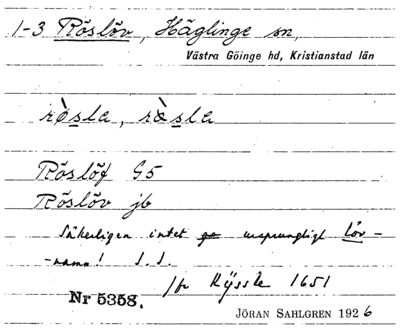 1-3 Röslöv, Häglinge sn,
Västra Göinge hd, Kristianstad län
rø̀sla, ræ̀sla
Röslöf G5
Röslöv jb
Säkerligen intet ursprungligt löv-
-namn! J. S.
Kyssle 1651
Nr 5358.
JÖRAN SAHLGREN 1926